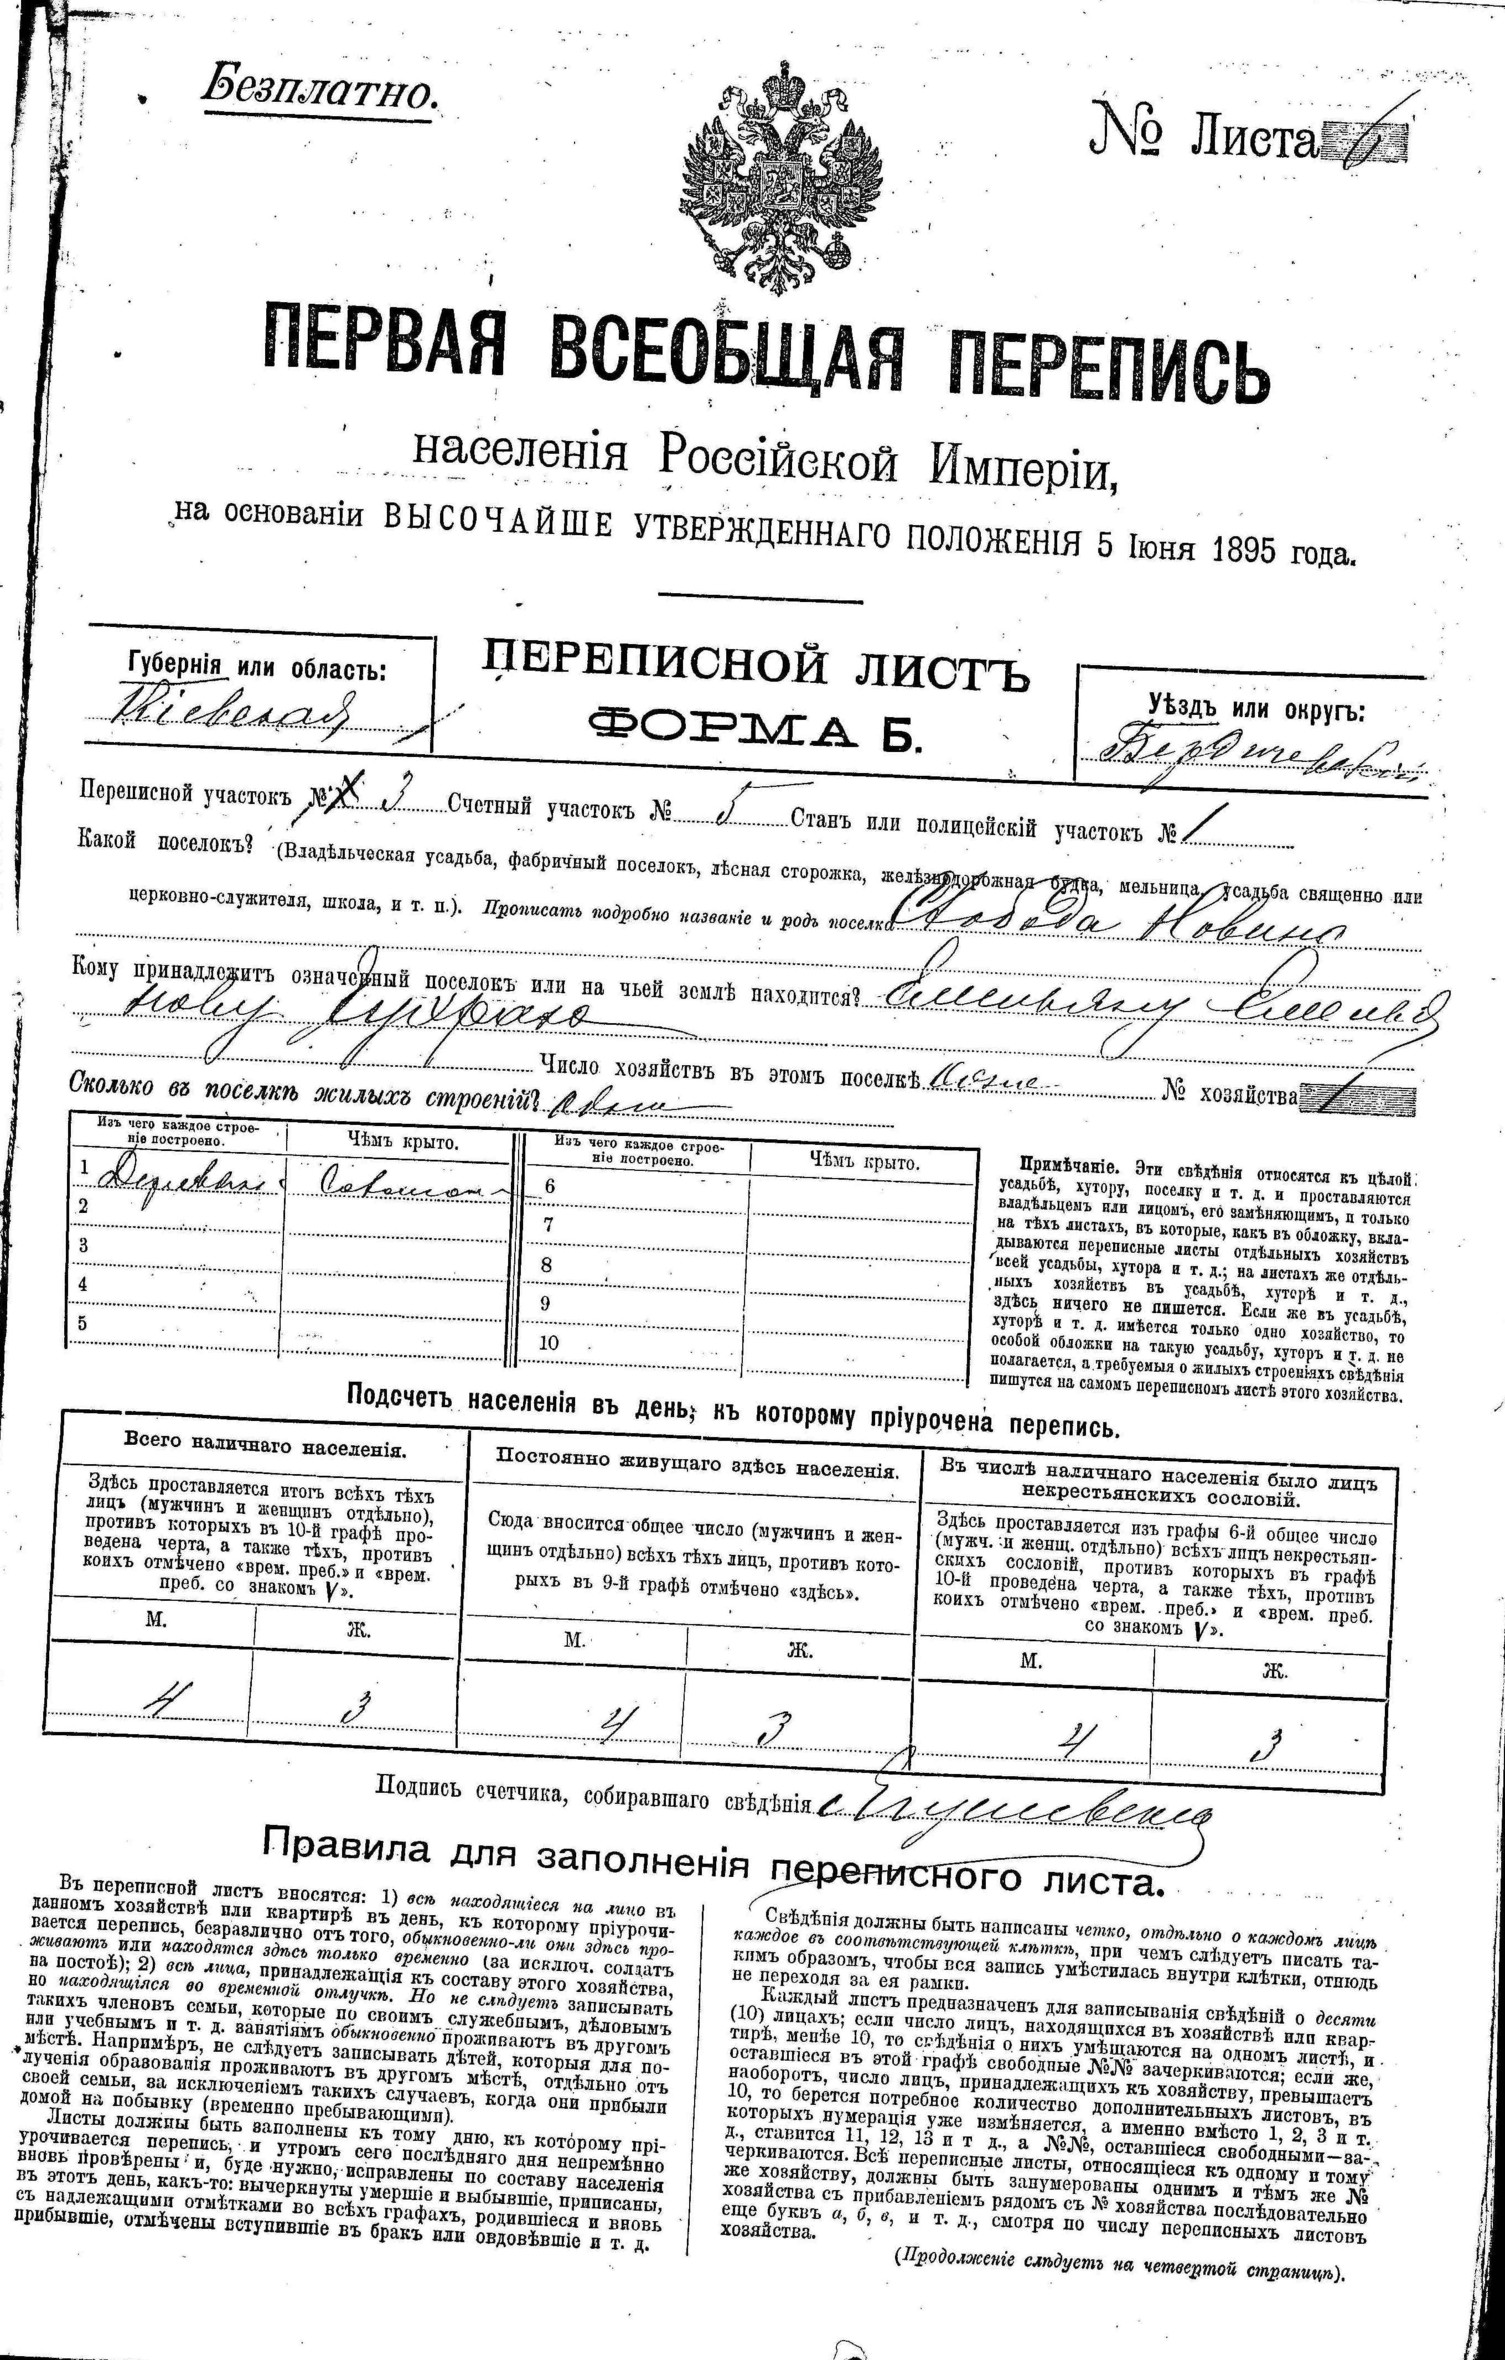 Безплатно.
№ Листа 6
ПЕРВАЯ ВСЕОБЩАЯ ПЕРЕПИСЬ
населенія Россійской Имперіи,
на основаніи ВЫСОЧАЙШЕ УТВЕРЖДЕННАГО ПОЛОЖЕНІЯ 5 Іюня 1895 года.
Губернія или область:
Кіевская
ПЕРЕПИСНОЙ ЛИСТЪ
ФОРМА Б.
Уѣздъ или округъ:
Бердичевскій
Переписной участокъ № 3 Счетный участокъ № 5 Станъ или полицейскій участокъ № 1
Какой поселокъ? (Владѣльческая усадьба, фабричный поселокъ, лѣсная сторожка, желѣзнодорожная будка, мельница, усадьба священно или
церковно-служителя, школа, и т. п.). Прописать подробно названіе и родъ поселка Слобода
Кому принадлежитъ означенный поселокъ или на чьей землѣ находится? Емельяну
Число хозяйствъ въ этомъ поселкѣ № хозяйства 1
Сколько въ поселкѣ жилыхъ строеній?
Изъ чего каждое строе-
ніе построено.
Чѣмъ крыто.
Изъ чего каждое строе-
ніе построено.
Чѣмъ крыто.
1
2
3
4
5
6
7
8
9
10
Примѣчаніе. Эти свѣдѣнія относятся къ цѣлой
усадьбѣ, хутору, поселку и т. д. и проставляются
владѣльцемъ или лицомъ, его замѣняющимъ, и только
на тѣхъ листахъ, въ которые, какъ въ обложку, вкла-
дываются переписные листы отдѣльныхъ хозяйствъ
всей усадьбы, хутора и т. д.; на листахъ же отдѣль-
ныхъ хозяйствъ въ усадьбѣ, хуторѣ и т. д.,
здѣсь ничего не пишется. Если же въ усадьбѣ,
хуторѣ и т. д. имѣется только одно хозяйство, то
особой обложки на такую усадьбу, хуторъ и т. д. не
полагается, а требуемыя о жилыхъ строеніяхъ свѣдѣнія
пишутся на самомъ переписномъ листѣ этого хозяйства.
Подсчетъ населенія въ день, къ которому пріурочена перепись.
Всего наличнаго населенія.
Здѣсь проставляется итогъ всѣхъ тѣхъ
лицъ (мужчинъ и женщинъ отдѣльно),
противъ которыхъ въ 10-й графѣ про-
ведена черта, а также тѣхъ, противъ
коихъ отмѣчено «врем. преб.» и «врем.
преб. со знакомъ V».
М. Ж.
4 3
Постоянно живущаго здѣсь населенія.
Сюда вносится общее число (мужчинъ и жен-
щинъ отдѣльно) всѣхъ тѣхъ лицъ, противъ кото-
рыхъ въ 9-й графѣ отмѣчено «здѣсь».
М. Ж.
4 3
Въ числѣ наличнаго населенія было лицъ
некрестьянскихъ сословій.
Здѣсь проставляется изъ графы 6-й общее число
(мужч. и женщ. отдѣльно) всѣхъ лицъ некрестьян-
скихъ сословій, противъ которыхъ въ графѣ
10-й проведена черта, а также тѣхъ, противъ
коихъ отмѣчено «врем. преб.» и «врем. преб.
со знакомъ V».
М. Ж.
4 3
Подпись счетчика, собиравшаго свѣдѣнія
Правила для заполненія переписного листа.
Въ переписной листъ вносятся: 1) всѣ находящіеся на лицо въ
данномъ хозяйствѣ или квартирѣ въ день, къ которому пріурочи-
вается перепись, безразлично отъ того, обыкновенно-ли они здѣсь про-
живаютъ или находятся здѣсь только временно (за исключ. солдатъ
на постоѣ); 2) всѣ лица, принадлежащія къ составу этого хозяйства,
но находящіяся во временной отлучкѣ. Но не слѣдуетъ записывать
такихъ членовъ семьи, которые по своимъ служебнымъ, дѣловымъ
или учебнымъ и т. д. занятіямъ обыкновенно проживаютъ въ другомъ
мѣстѣ. Напримѣръ, не слѣдуетъ записывать дѣтей, которыя для по-
лученія образованія проживаютъ въ другомъ мѣстѣ, отдѣльно отъ
своей семьи, за исключеніемъ такихъ случаевъ, когда они прибыли
домой на побывку (временно пребывающими).
Листы должны быть заполнены къ тому дню, къ которому прі-
урочивается перепись, и утромъ сего послѣдняго дня непремѣнно
вновь провѣрены и, буде нужно, исправлены по составу населенія
въ этотъ день, какъ-то: вычеркнуты умершіе и выбывшіе, приписаны,
съ надлежащими отмѣтками во всѣхъ графахъ, родившіеся и вновь
прибывшіе, отмѣчены вступившіе въ бракъ или овдовѣвшіе и т. д.
Свѣдѣнія должны быть написаны четко, отдѣльно о каждомъ лицѣ
каждое въ соотвѣтствующей клѣткѣ, при чемъ слѣдуетъ писать та-
кимъ образомъ, чтобы вся запись умѣстилась внутри клѣтки, отнюдь
не переходя за ея рамки.
Каждый листъ предназначенъ для записыванія свѣдѣній о десяти
(10) лицахъ; если число лицъ, находящихся въ хозяйствѣ или квар-
тирѣ, менѣе 10, то свѣдѣнія о нихъ умѣщаются на одномъ листѣ, и
оставшіеся въ этой графѣ свободные №№ зачеркиваются; если же,
наоборотъ, число лицъ, принадлежащихъ къ хозяйству, превышаетъ
10, то берется потребное количество дополнительныхъ листовъ, въ
которыхъ нумерація уже измѣняется, а именно вмѣсто 1, 2, 3 и т.
д., ставится 11, 12, 13 и т д., а №№, оставшіеся свободными—за-
черкиваются. Всѣ переписные листы, относящіеся къ одному и тому
же хозяйству, должны быть занумерованы однимъ и тѣмъ же №
хозяйства съ прибавленіемъ рядомъ съ № хозяйства послѣдовательно
еще буквъ а, б, в, и т. д., смотря по числу переписныхъ листовъ
хозяйства.
(Продолженіе слѣдуетъ на четвертой страницѣ).